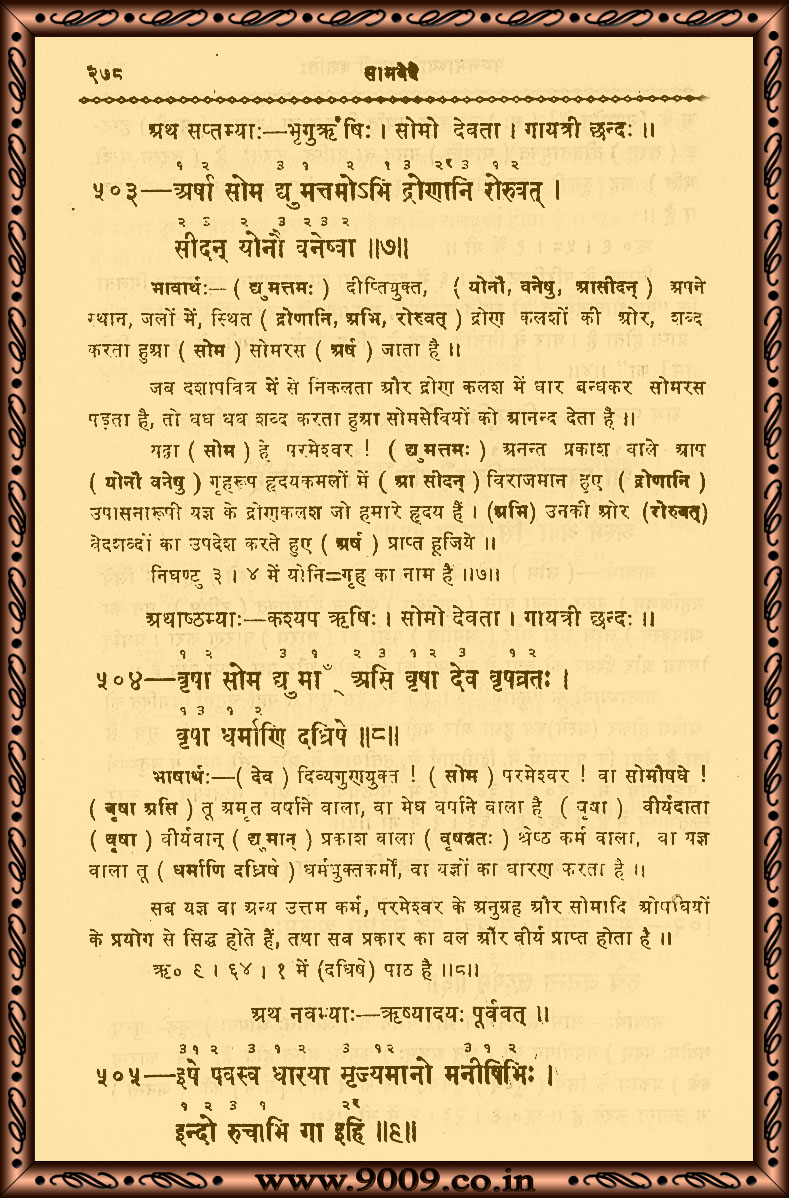 २७८ सामवेदे
अथ सप्तम्याः—भृगुर्ऋषिः । सोमो देवता । गायत्री छन्दः ॥
१ २ ३ १ २ १ ३ २र ३ १ २
५०३—अर्षा सोम द्युमत्तमोऽभि द्रोणानि रोरुवत् ।
२ ३ २ ३ २ ३ २
सीदन् योनौ वनेष्वा ॥७॥
भावार्थः—( द्युमत्तमः ) दीप्तियुक्त, ( योनौ, वनेषु, आसीदन् ) अपने
स्थान, जलों में, स्थित ( द्रोणानि, अभि, रोरुवत् ) द्रोण कलशों की ओर, शब्द
करता हुआ ( सोम ) सोमरस ( अर्ष ) जाता है ॥
जब दशापवित्र में से निकलता और द्रोण कलश में धार बन्धकर सोमरस
पड़ता है, तो धध धध शब्द करता हुआ सोमसेवियों को आनन्द देता है ॥
यद्वा ( सोम ) हे परमेश्वर ! ( द्युमत्तमः ) अनन्त प्रकाश वाले आप
( योनौ वनेषु ) गृहरूप हृदयकमलों में ( आ सीदन् ) विराजमान हुए ( द्रोणानि )
उपासनारूपी यज्ञ के द्रोणकलश जो हमारे हृदय हैं । (अभि) उनकी ओर (रोरुवत्)
वेदशब्दों का उपदेश करते हुए ( अर्ष ) प्राप्त हूजिये ॥
निघण्टु ३ । ४ में योनि=गृह का नाम है ॥७॥
अथाष्ठम्याः—कश्यप ऋषिः । सोमो देवता । गायत्री छन्दः ॥
१ २ ३ १ २ ३ १ २ ३ १ २
५०४—वृषा सोम द्युमाँ असि वृषा देव वृषव्रतः ।
१ ३ १ २
वृषा धर्माणि दध्रिषे ॥८॥
भाषार्थः—( देव ) दिव्यगुणयुक्त ! ( सोम ) परमेश्वर ! वा सोमौषधे !
( वृषा असि ) तू अमृत वर्षाने वाला, वा मेघ वर्षाने वाला है ( वृषा ) वीर्यदाता
( वृषा ) वीर्यवान् ( द्युमान् ) प्रकाश वाला ( वृषव्रतः ) श्रेष्ठ कर्म वाला, वा यज्ञ
वाला तू ( धर्माणि दध्रिषे ) धर्मयुक्तकर्मों, वा यज्ञों का धारण करता है ॥
सब यज्ञ वा अन्य उत्तम कर्म, परमेश्वर के अनुग्रह और सोमादि ओषधियों
के प्रयोग से सिद्ध होते हैं, तथा सब प्रकार का बल और वीर्य प्राप्त होता है ॥
ऋ० ९ । ६४ । १ में (दधिषे) पाठ है ॥८॥
अथ नवम्याः—ऋष्यादयः पूर्ववत् ॥
३ १ २ ३ १ २ ३ १२ ३ १ २
५०५—इषे पवस्व धारया मृज्यमानो मनीषिभिः ।
१ २ ३ १ २र
इन्दो रुचाभि गा इहि ॥९॥
www.9009.co.in